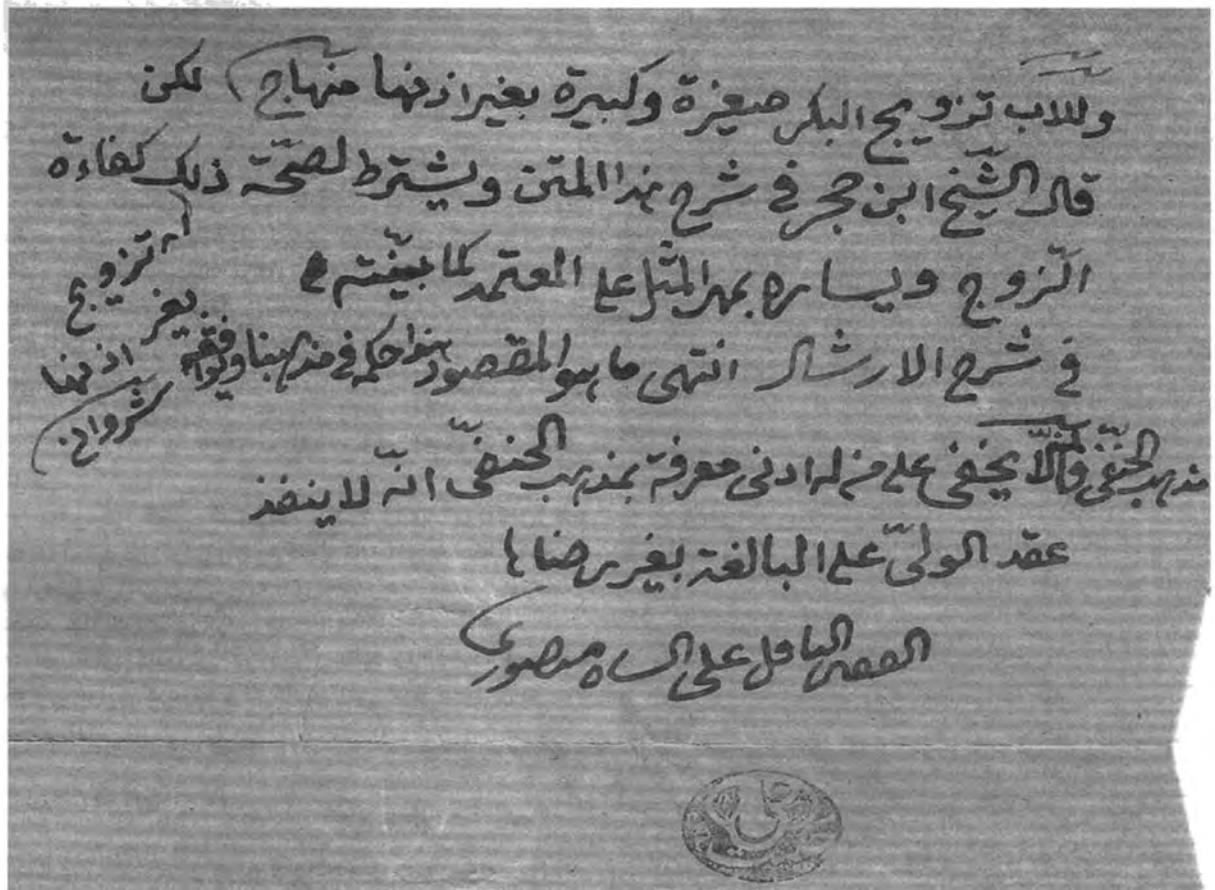 وللاب تزويج البكر صغيرة وكبيرة بغير اذنها منهاج لكن
قال الشيخ ابن حجر في شرح هذا المتن ويشترط لصحّة ذلك كفاءة
الزوج ويساره بمهر المثل على المعتمد كما بيّنته
في شرح الارشاد انتهى ما هو المقصود هذا حكم في مذهبنا
مذهب الحنفي لا يخفى على من له ادنى معرفة بمذهب الحنفيّ انّه لا ينفذ
عقد الوليّ على البالغة بغير رضاها
على الساه منصوري
اى تزويج
بغير
اذنها
شرواني
على